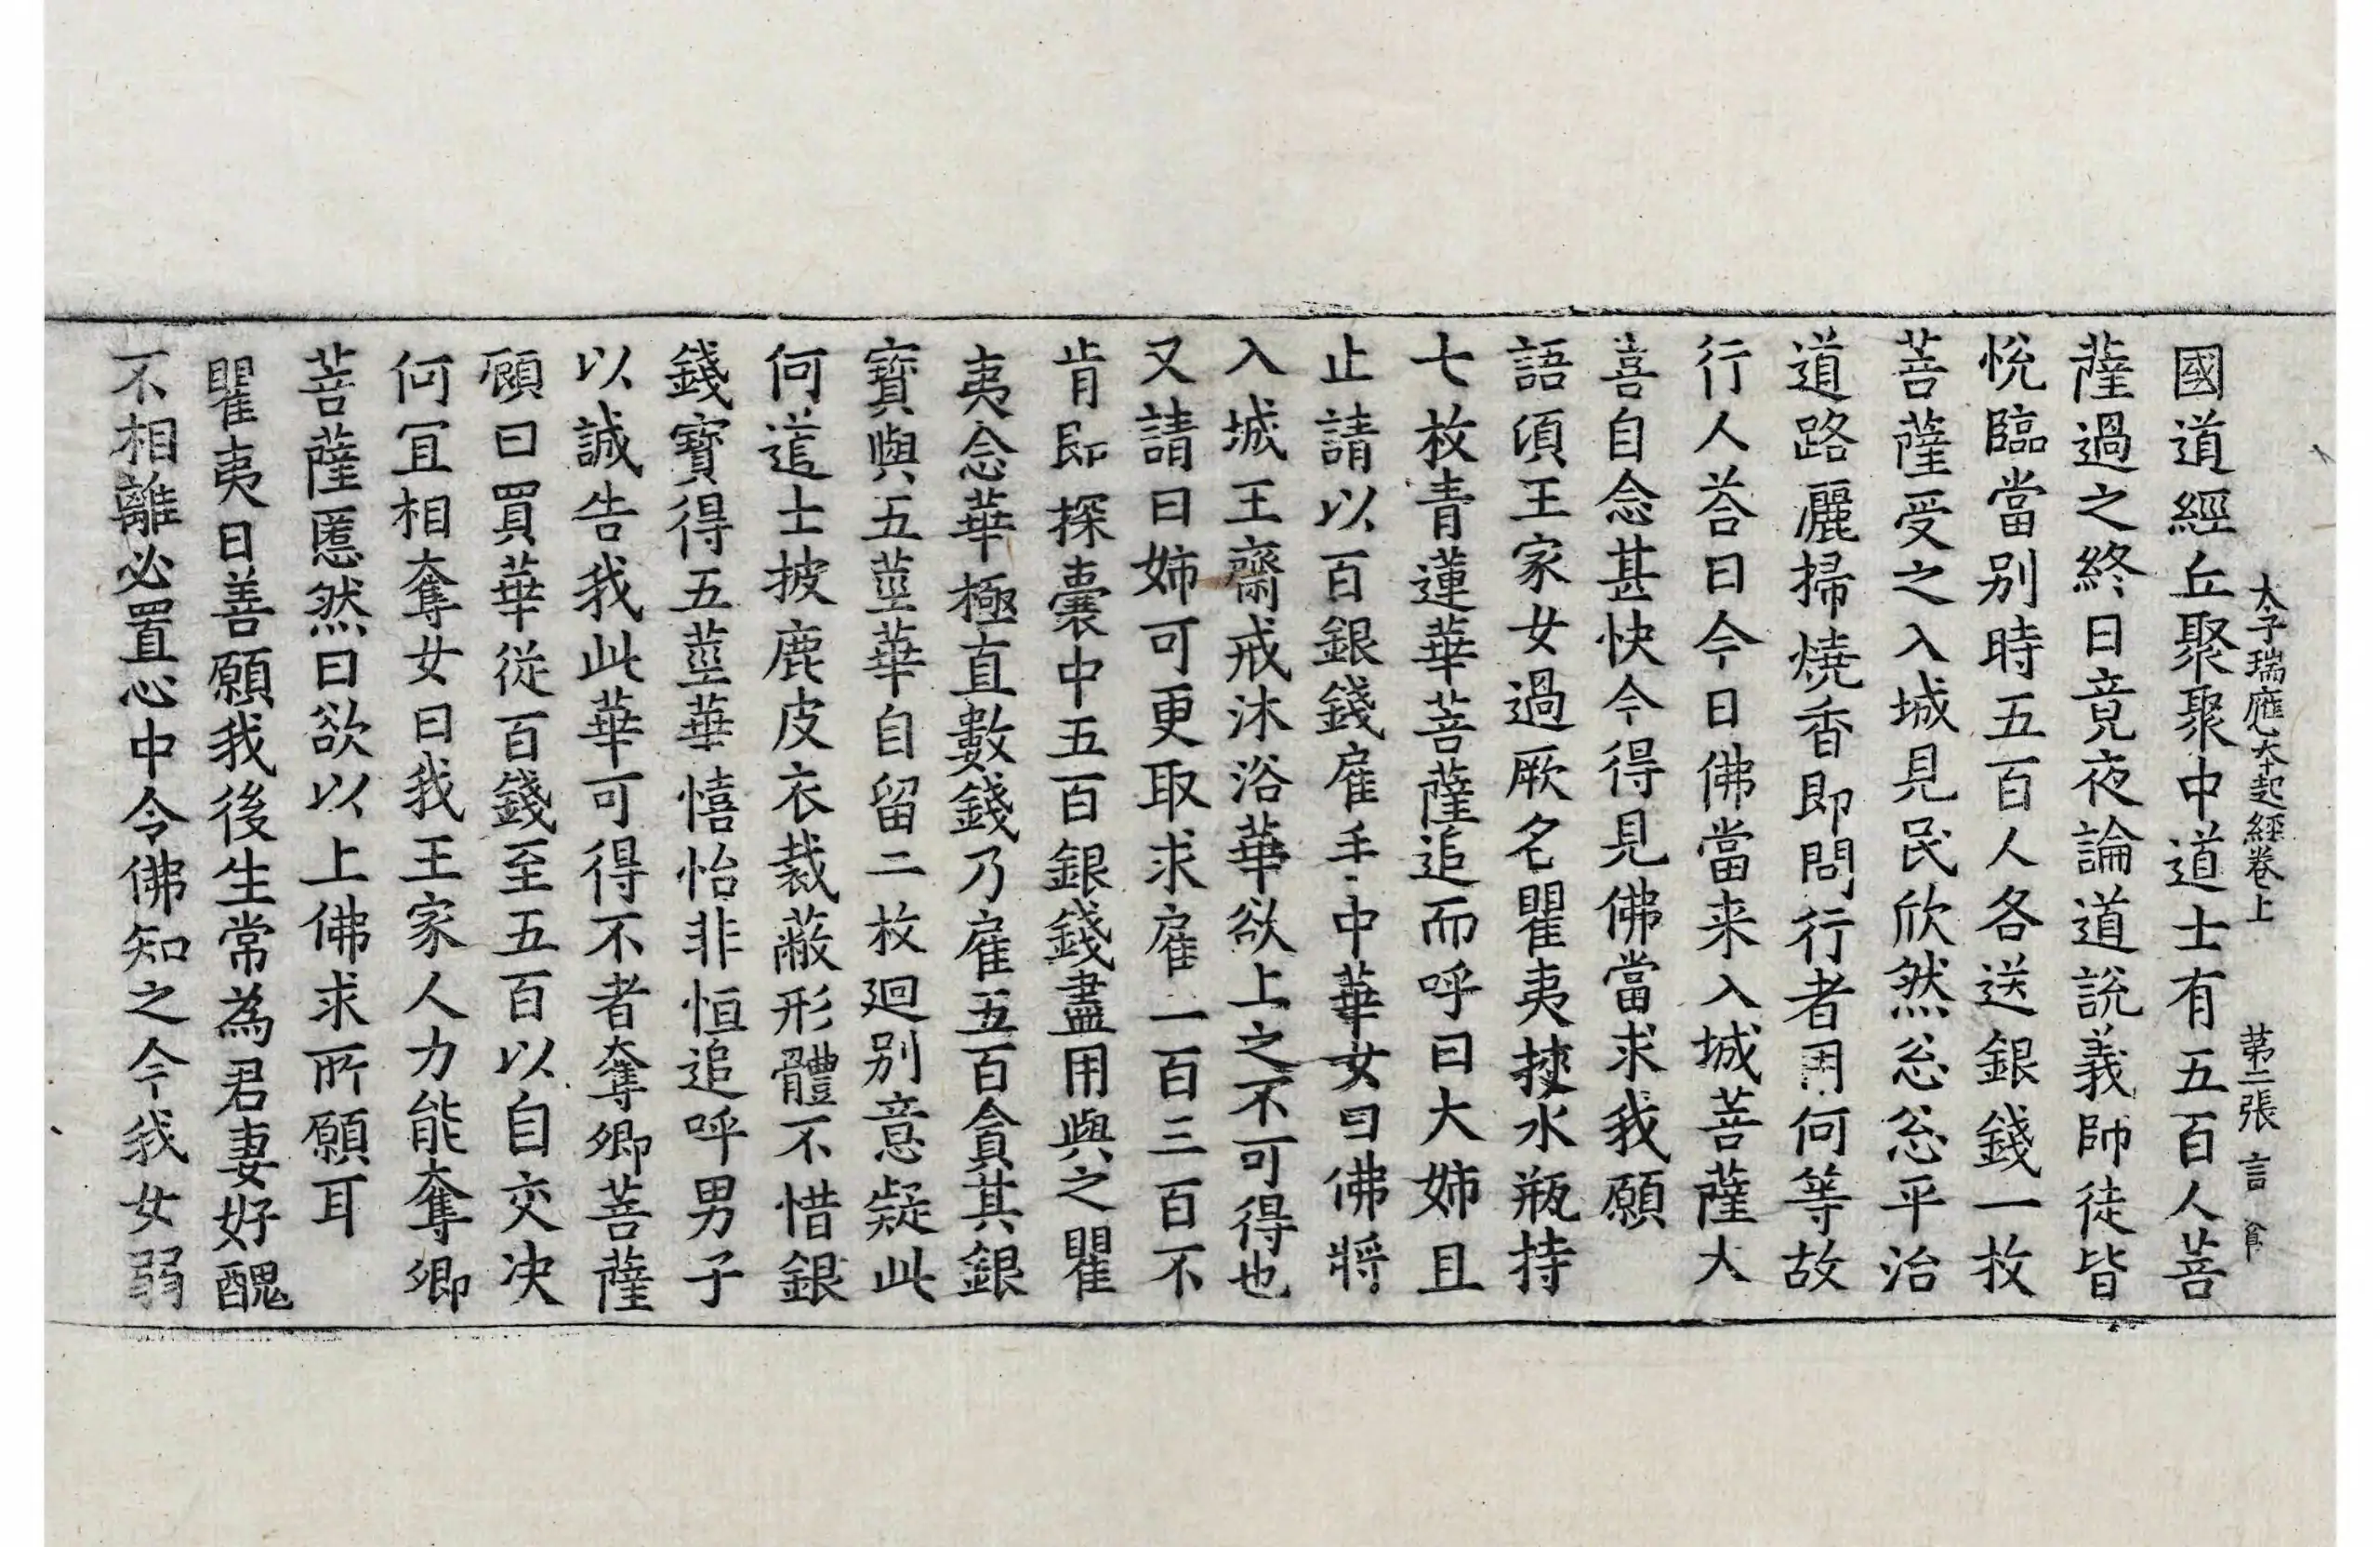 太子瑞應夲起經卷上　第二張　言　食
國道經丘聚聚中道士有五百人菩
薩過之終日竟夜論道說義師徒皆
悅臨當别時五百人各送銀錢一枚
菩薩受之入城見民欣然忩忩平治
道路灑掃燒香即問行者用何等故
行人荅曰今日佛當来入城菩薩大
喜自念甚快今得見佛當求我願
語頃王家女過厥名瞿夷挾水瓶持
七枚青蓮華菩薩追而呼曰大姊且
止請以百銀錢雇手中華女曰佛將
入城王齋戒沐浴華欲上之不可得也
又請曰姊可更取求雇二百三百不
肯即探囊中五百銀錢盡用與之瞿
夷念華極直數錢乃雇五百貪其銀
寶與五莖華自留二枚迴别意疑此
何道士披鹿皮衣裁蔽形體不惜銀
錢寶得五莖華憘怡非恒追呼男子
以誠告我此華可得不者奪卿菩薩
顧曰買華從百錢至五百以自交決
何冝相奪女曰我王家人力能奪卿
菩薩慝然曰欲以上佛求所願耳
瞿夷曰善願我後生常為君妻好醜
不相離必置心中令佛知之今我女弱